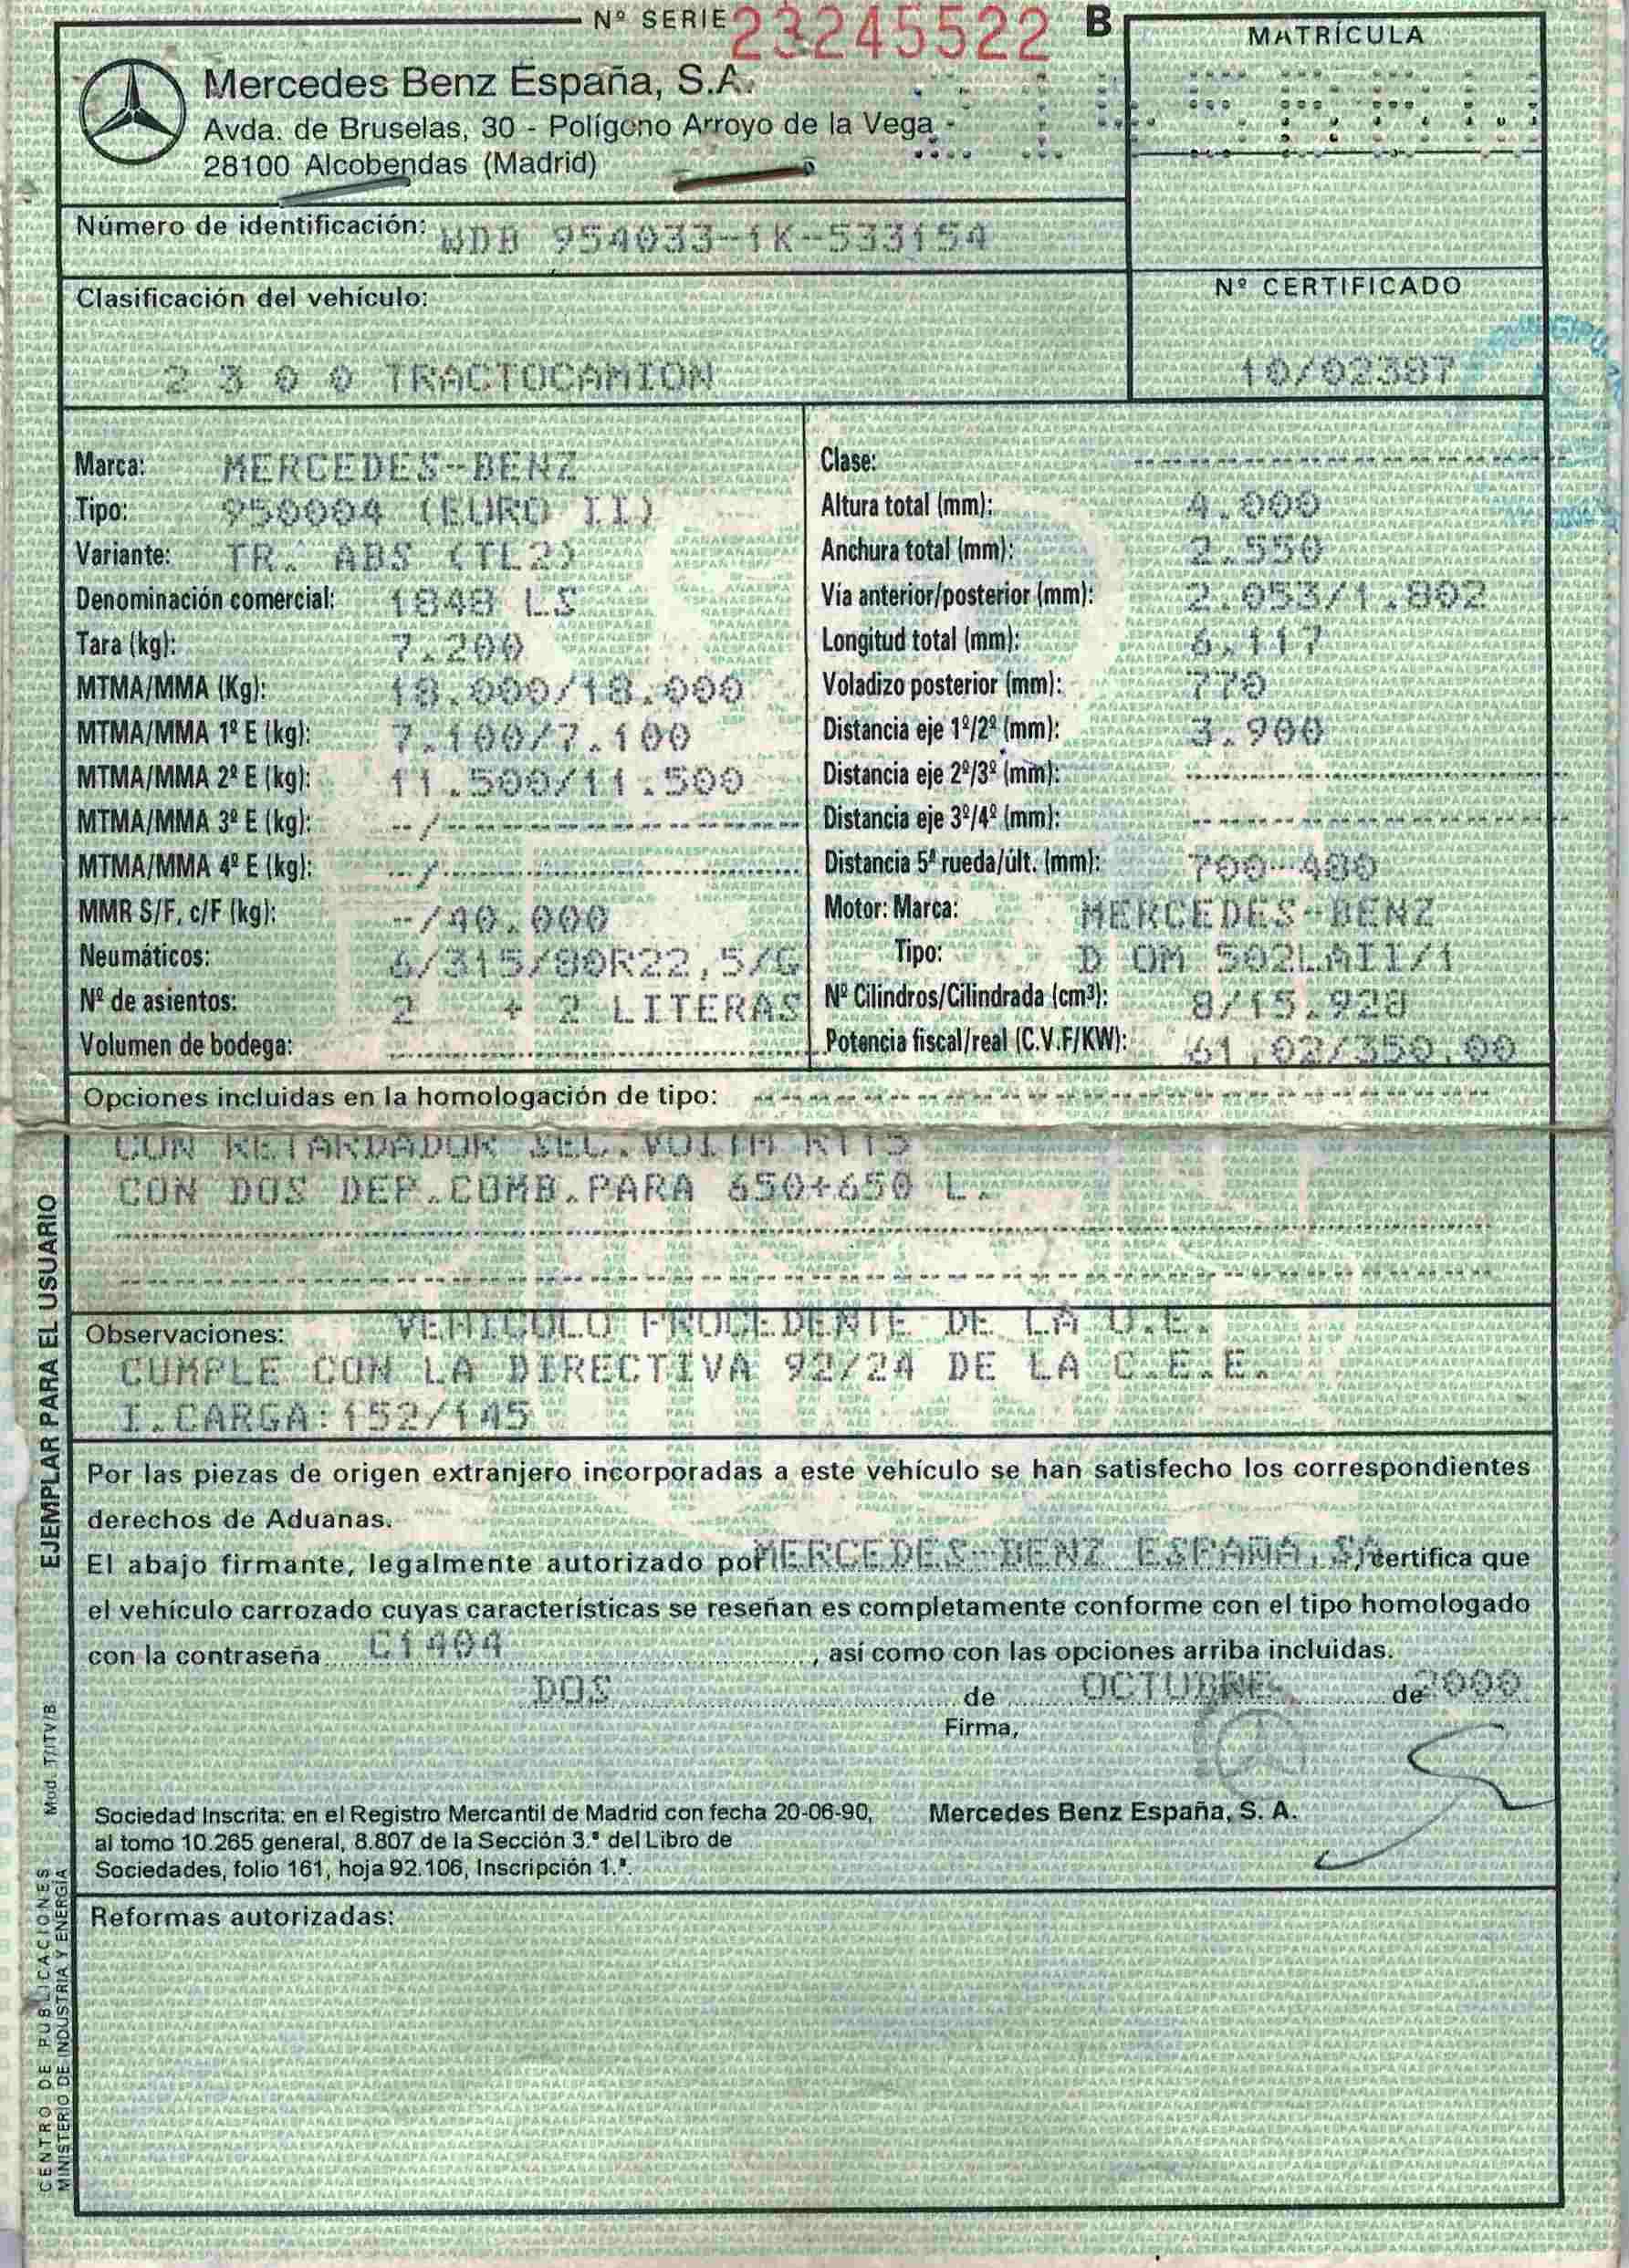 Nº SERIE 23245522 B
MATRÍCULA
Mercedes Benz España, S.A.
Avda. de Bruselas, 30 - Polígono Arroyo de la Vega -
28100 Alcobendas (Madrid)
Número de identificación: WDB 954033-1K-533154
Clasificación del vehículo:
2 3 0 0 TRACTOCAMION
Nº CERTIFICADO
10/02387
Marca: MERCEDES-BENZ
Tipo: 950004 (EURO II)
Variante: TR. ABS (TL2)
Denominación comercial: 1848 LS
Tara (kg): 7.200
MTMA/MMA (Kg): 18.000/18.000
MTMA/MMA 1º E (kg): 7.100/7.100
MTMA/MMA 2º E (kg): 11.500/11.500
MTMA/MMA 3º E (kg): --/---
MTMA/MMA 4º E (kg): --/---
MMR S/F, c/F (kg): --/40.000
Neumáticos: 6/315/80R22,5/G
Nº de asientos: 2 + 2 LITERAS
Volumen de bodega:
Clase:
Altura total (mm): 4.000
Anchura total (mm): 2.550
Vía anterior/posterior (mm): 2.053/1.802
Longitud total (mm): 6.117
Voladizo posterior (mm): 770
Distancia eje 1º/2º (mm): 3.900
Distancia eje 2º/3º (mm):
Distancia eje 3º/4º (mm):
Distancia 5ª rueda/últ. (mm): 700-480
Motor: Marca: MERCEDES-BENZ
Tipo: D OM 502LAII/1
Nº Cilindros/Cilindrada (cm³): 8/15.928
Potencia fiscal/real (C.V.F/KW): 61,02/350,00
Opciones incluidas en la homologación de tipo:
CON RETARDADOR SEC.VOITH R115
CON DOS DEP.COMB.PARA 650+650 L.
Observaciones: VEHICULO PROCEDENTE DE LA U.E.
CUMPLE CON LA DIRECTIVA 92/24 DE LA C.E.E.
I.CARGA:152/145
Por las piezas de origen extranjero incorporadas a este vehículo se han satisfecho los correspondientes
derechos de Aduanas.
El abajo firmante, legalmente autorizado por MERCEDES-BENZ ESPAÑA, SA, certifica que
el vehículo carrozado cuyas características se reseñan es completamente conforme con el tipo homologado
con la contraseña C1404, así como con las opciones arriba incluidas.
DOS de OCTUBRE de 2000
Firma,
Sociedad Inscrita: en el Registro Mercantil de Madrid con fecha 20-06-90,
al tomo 10.265 general, 8.807 de la Sección 3.ª del Libro de
Sociedades, folio 161, hoja 92.106, Inscripción 1.ª.
Mercedes Benz España, S. A.
Reformas autorizadas:
EJEMPLAR PARA EL USUARIO
Mod. T/ITV/B
CENTRO DE PUBLICACIONES
MINISTERIO DE INDUSTRIA Y ENERGÍA